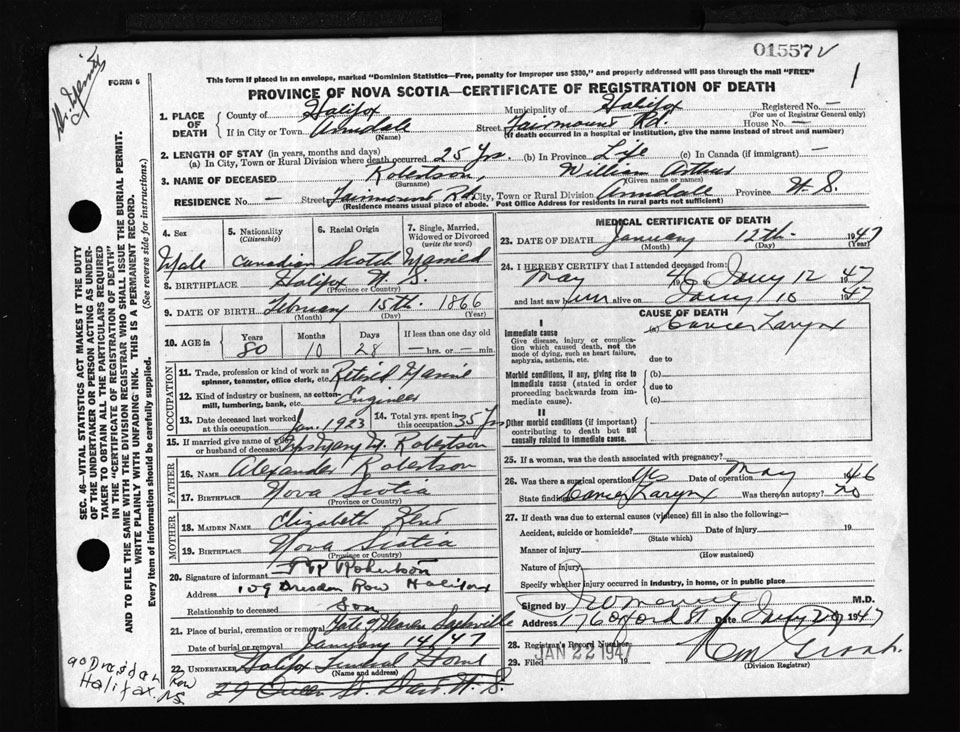 01557 V
1
FORM 6
This form if placed in an envelope, marked "Dominion Statistics—Free, penalty for improper use $300," and properly addressed will pass through the mail "FREE"
PROVINCE OF NOVA SCOTIA—CERTIFICATE OF REGISTRATION OF DEATH
1. PLACE OF DEATH County of Halifax Municipality of Halifax Registered No. —
(For use of Registrar General only)
If in City or Town Armdale Street Fairmount Rd. House No. —
(Name) (If death occurred in a hospital or institution, give the name instead of street and number)
2. LENGTH OF STAY (in years, months and days)
(a) In City, Town or Rural Division where death occurred 25 Yrs. (b) In Province Life (c) In Canada (if immigrant) —
3. NAME OF DECEASED Robertson, William Arthur
(Surname) (Given name or names)
RESIDENCE No. — Street Fairmount Rd. City, Town or Rural Division Armdale Province N. S.
(Residence means usual place of abode. Post Office Address for residents in rural parts not sufficient)
4. Sex 5. Nationality (Citizenship) 6. Racial Origin 7. Single, Married, Widowed or Divorced (write the word)
Male Canadian Scotch Married
8. BIRTHPLACE Halifax N. S.
(Province or Country)
9. DATE OF BIRTH February 15th. 1866
(Month) (Day) (Year)
10. AGE in Years Months Days If less than one day old
80 10 28 — hrs. or — min.
OCCUPATION
11. Trade, profession or kind of work as spinner, teamster, office clerk, etc. Retired Marine
12. Kind of industry or business, as cotton mill, lumbering, bank, etc. Engineer
13. Date deceased last worked at this occupation Jan. 1923 14. Total yrs. spent in this occupation 35 Yrs
15. If married give name of wife or husband of deceased Robertson
FATHER
16. NAME Alexander Robertson
17. BIRTHPLACE Nova Scotia
(Province or Country)
MOTHER
18. MAIDEN NAME Elizabeth Kent
19. BIRTHPLACE Nova Scotia
(Province or Country)
20. Signature of informant Robertson
Address 109 Dresden Row Halifax
Relationship to deceased Son
21. Place of burial, cremation or removal Gate of Heaven Sackville
Date of burial or removal January 14/47
22. UNDERTAKER Halifax Funeral Home
(Name and address)
29 Queen St. N. S.
MEDICAL CERTIFICATE OF DEATH
23. DATE OF DEATH January 12th. 1947
(Month) (Day) (Year)
24. I HEREBY CERTIFY that I attended deceased from:
May 1946 to Jany 12 1947
and last saw him alive on Jany 10 1947
CAUSE OF DEATH
I
Immediate cause (a) Cancer Larynx
Give disease, injury or complication which caused death, not the mode of dying, such as heart failure, asphyxia, asthenia, etc. due to
Morbid conditions, if any, giving rise to immediate cause (stated in order proceeding backwards from immediate cause). (b)
due to
(c)
II
Other morbid conditions (if important) contributing to death but not causally related to immediate cause.
25. If a woman, was the death associated with pregnancy?
26. Was there a surgical operation? Yes Date of operation May 1946
State findings Cancer Larynx Was there an autopsy? No
27. If death was due to external causes (violence) fill in also the following:—
Accident, suicide or homicide? Date of injury 19
(State which)
Manner of injury
(How sustained)
Nature of injury
Specify whether injury occurred in industry, in home, or in public place
Signed by M.D.
Address Oxford St Date Jany 20 1947
28. Registrar's Record Number
29. Filed JAN 22 1947 19
(Division Registrar)
SEC. 46—VITAL STATISTICS ACT MAKES IT THE DUTY
OF THE UNDERTAKER OR PERSON ACTING AS UNDER-
TAKER TO OBTAIN ALL THE PARTICULARS REQUIRED
IN THE "CERTIFICATE OF REGISTRATION OF DEATH"
AND TO FILE THE SAME WITH THE DIVISION REGISTRAR WHO SHALL ISSUE THE BURIAL PERMIT.
WRITE PLAINLY WITH UNFADING INK. THIS IS A PERMANENT RECORD.
Every item of information should be carefully supplied. (See reverse side for instructions.)
90 Dresden Row
Halifax. NS